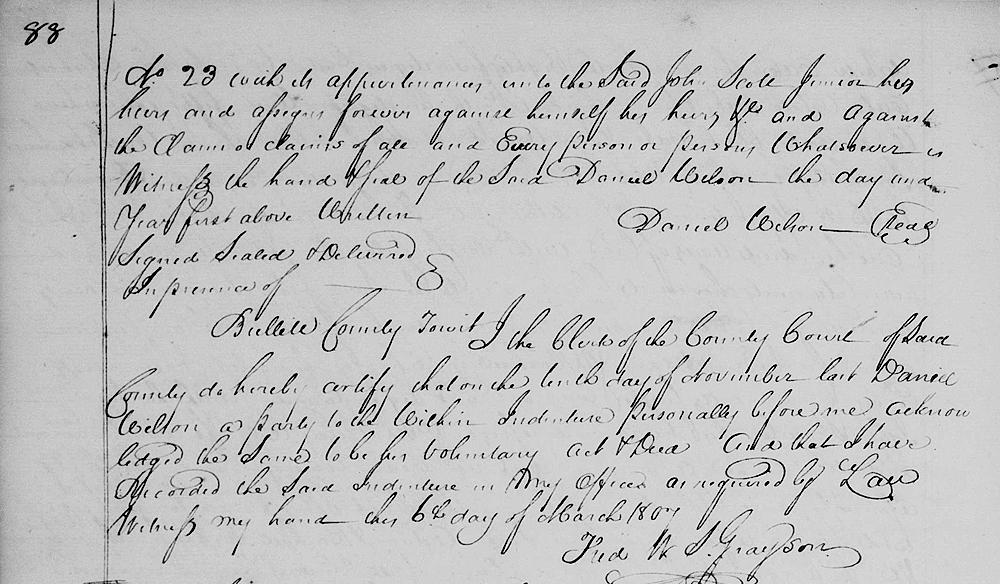 88
No 23 with its appurtenances unto the Said John Scott Junior his
heirs and assigns forever against himself his heirs &c and Against
the Claim or claims of all and Every person or persons Whatsoever in
Witness the hand & Seal of the Said Daniel Wilson the day and
Year first above Written Daniel Wilson Seal
Signed Sealed & Delivered
In presence of
Bullitt County Towit I the Clerk of the County Court of Said
County do hereby certify that on the tenth day of November last Daniel
Wilson a party to the Within Indenture personally before me acknow
ledged the Same to be his Voluntary act & Deed And that I have
Recorded the Said Indenture in My Office as required by Law
Witness my hand this 6th day of March 1807
Fred W S Grayson